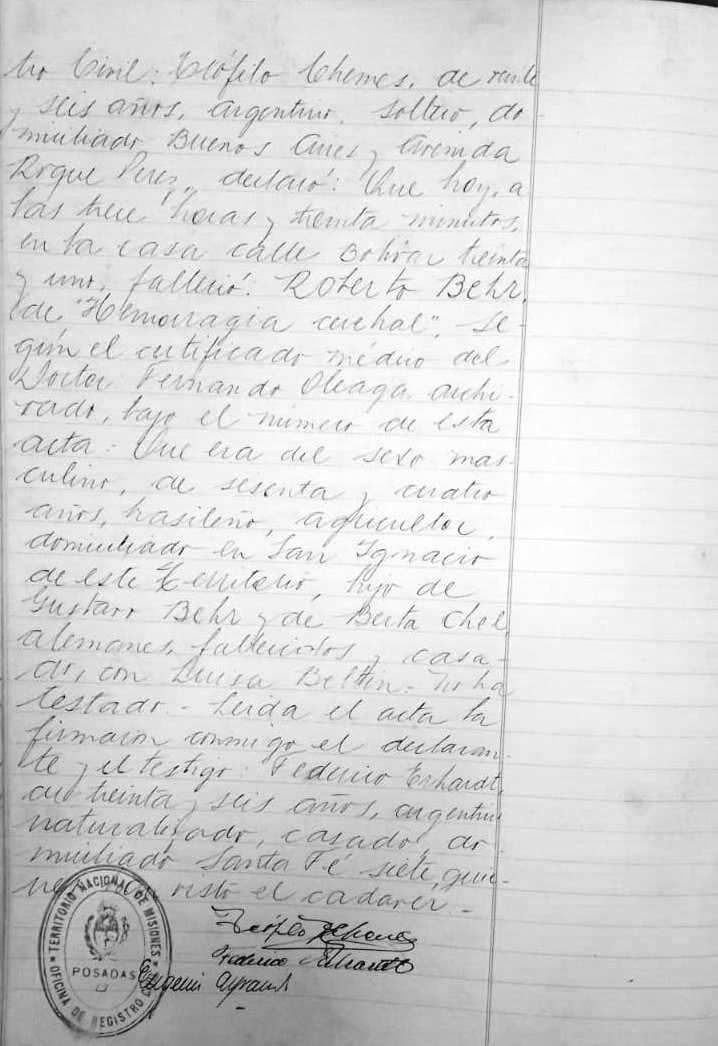 tro Civil: Teófilo Chemes, de veinte
y seis años, argentino, soltero, do-
miciliado Buenos Aires y Avenida
Roque Perez, declaró: Que hoy, a
las trece horas y treinta minutos,
en la casa calle Bolívar treinta
y uno, falleció: Roberto Behr,
de "Hemorragia cerebral". Se-
gún el certificado médico del
Doctor Fernando Oleaga archi-
vado, bajo el número de esta
acta: Que era del sexo mas-
culino, de sesenta y cuatro
años, brasileño, agricultor,
domiciliado en San Ignacio
de este Territorio, hijo de
Gustavo Behr y de Berta Ehel,
alemanes, fallecidos y casa-
do, con Luisa Beltin: No ha
testado - Leída el acta la
firmaron conmigo el declaran-
te y el testigo: Federico Erhardt,
de treinta y seis años, argentino
naturalizado, casado, do-
miciliado Santa Fé siete, quie-
visto el cadaver -
Teófilo Chemes
Federico Erhardt
Eugenio
TERRITORIO NACIONAL DE MISIONES
POSADAS
OFICINA DE REGISTRO